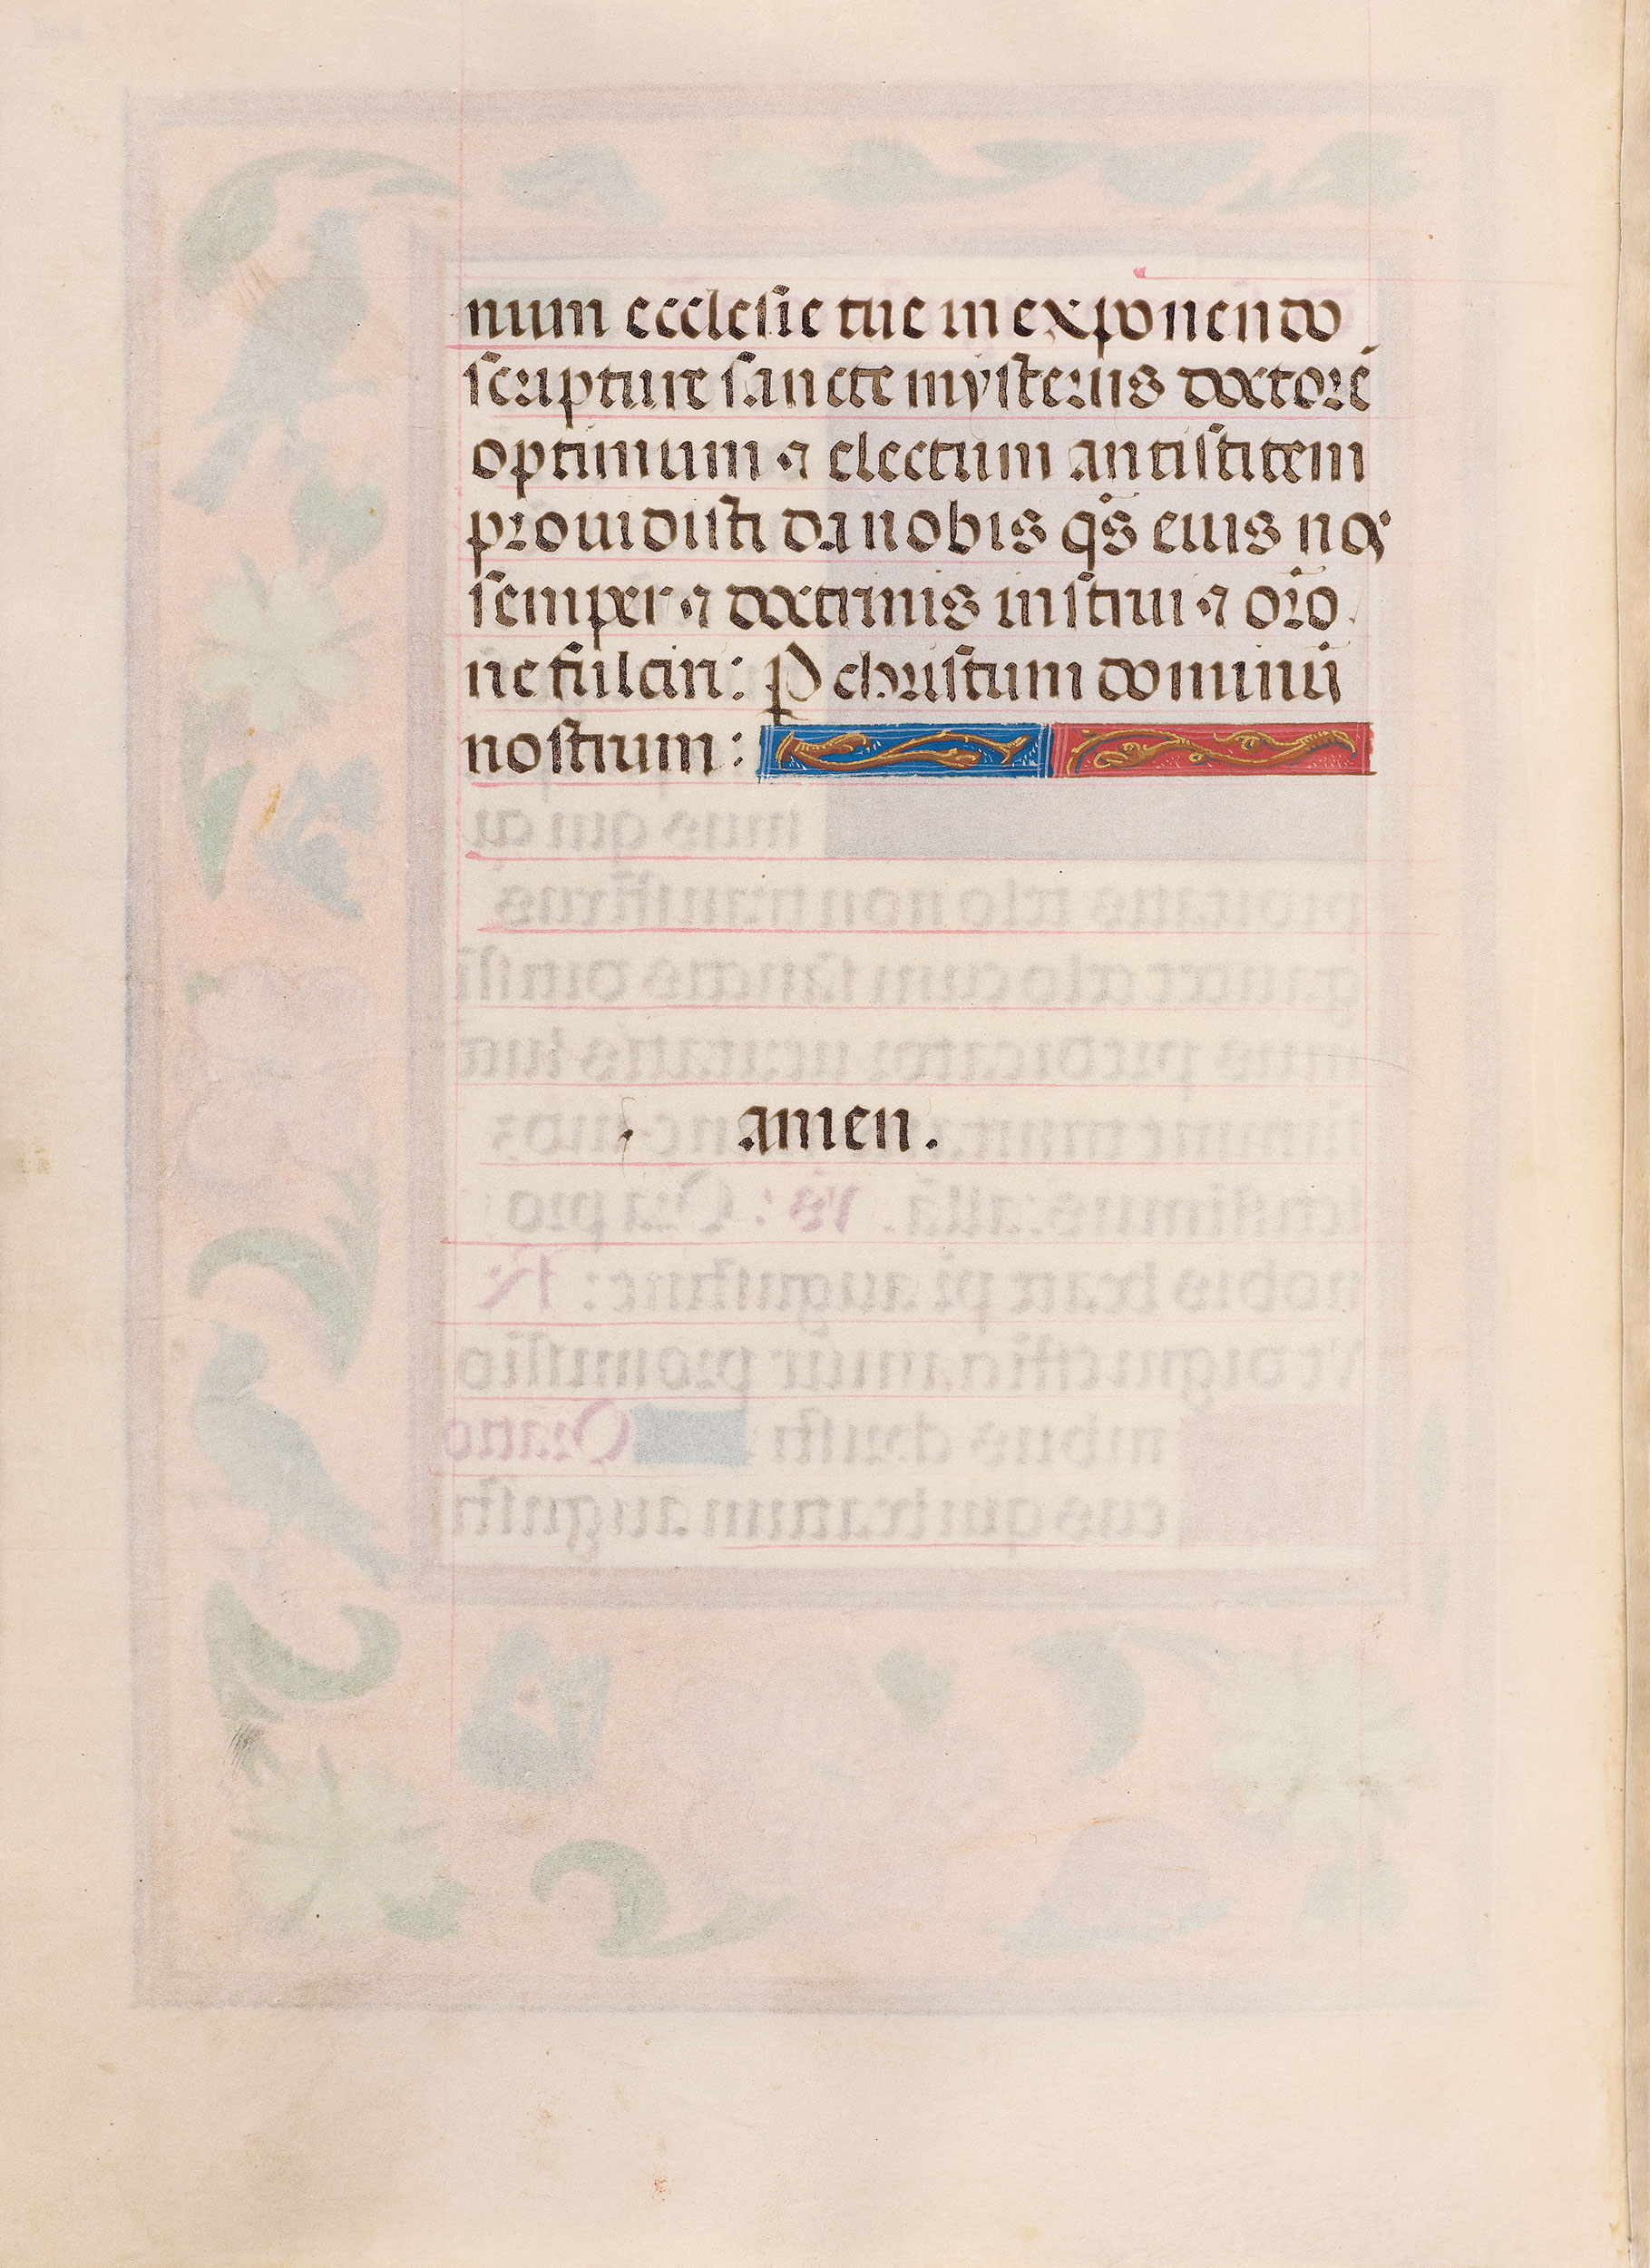 num ecclesie tue in exponendo
scripture sancte mysteriis doctorē
optimum ⁊ electum antistitem
prouidisti da nobis qs̄ eius nos
semper ⁊ doctrinis instrui ⁊ orō
ne fulciri: P christum dominū
nostrum:
amen.